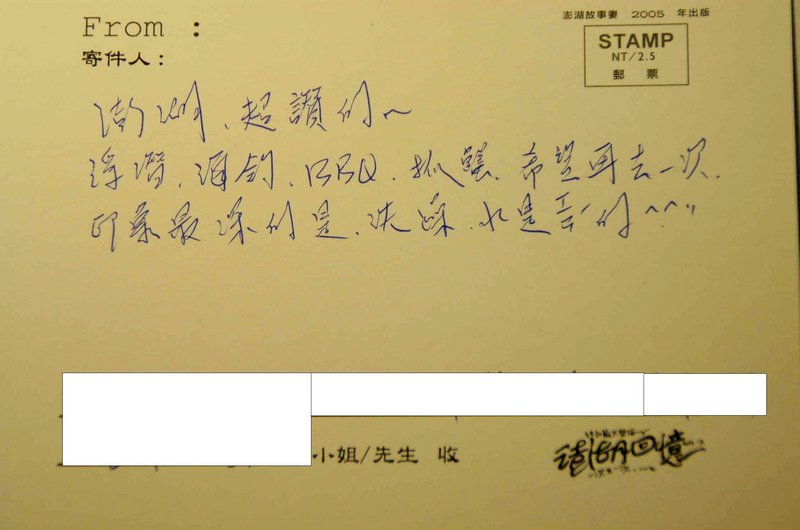 From :
澎湖故事妻 2005 年出版
STAMP
NT/2.5
郵 票
寄件人:
澎湖、超讚的~
浮潛、海釣、BBQ、抓蟹、希望再去一次、
印象最深的是、洗澡、水是 的^^"
小姐/先生 收
澎湖回憶